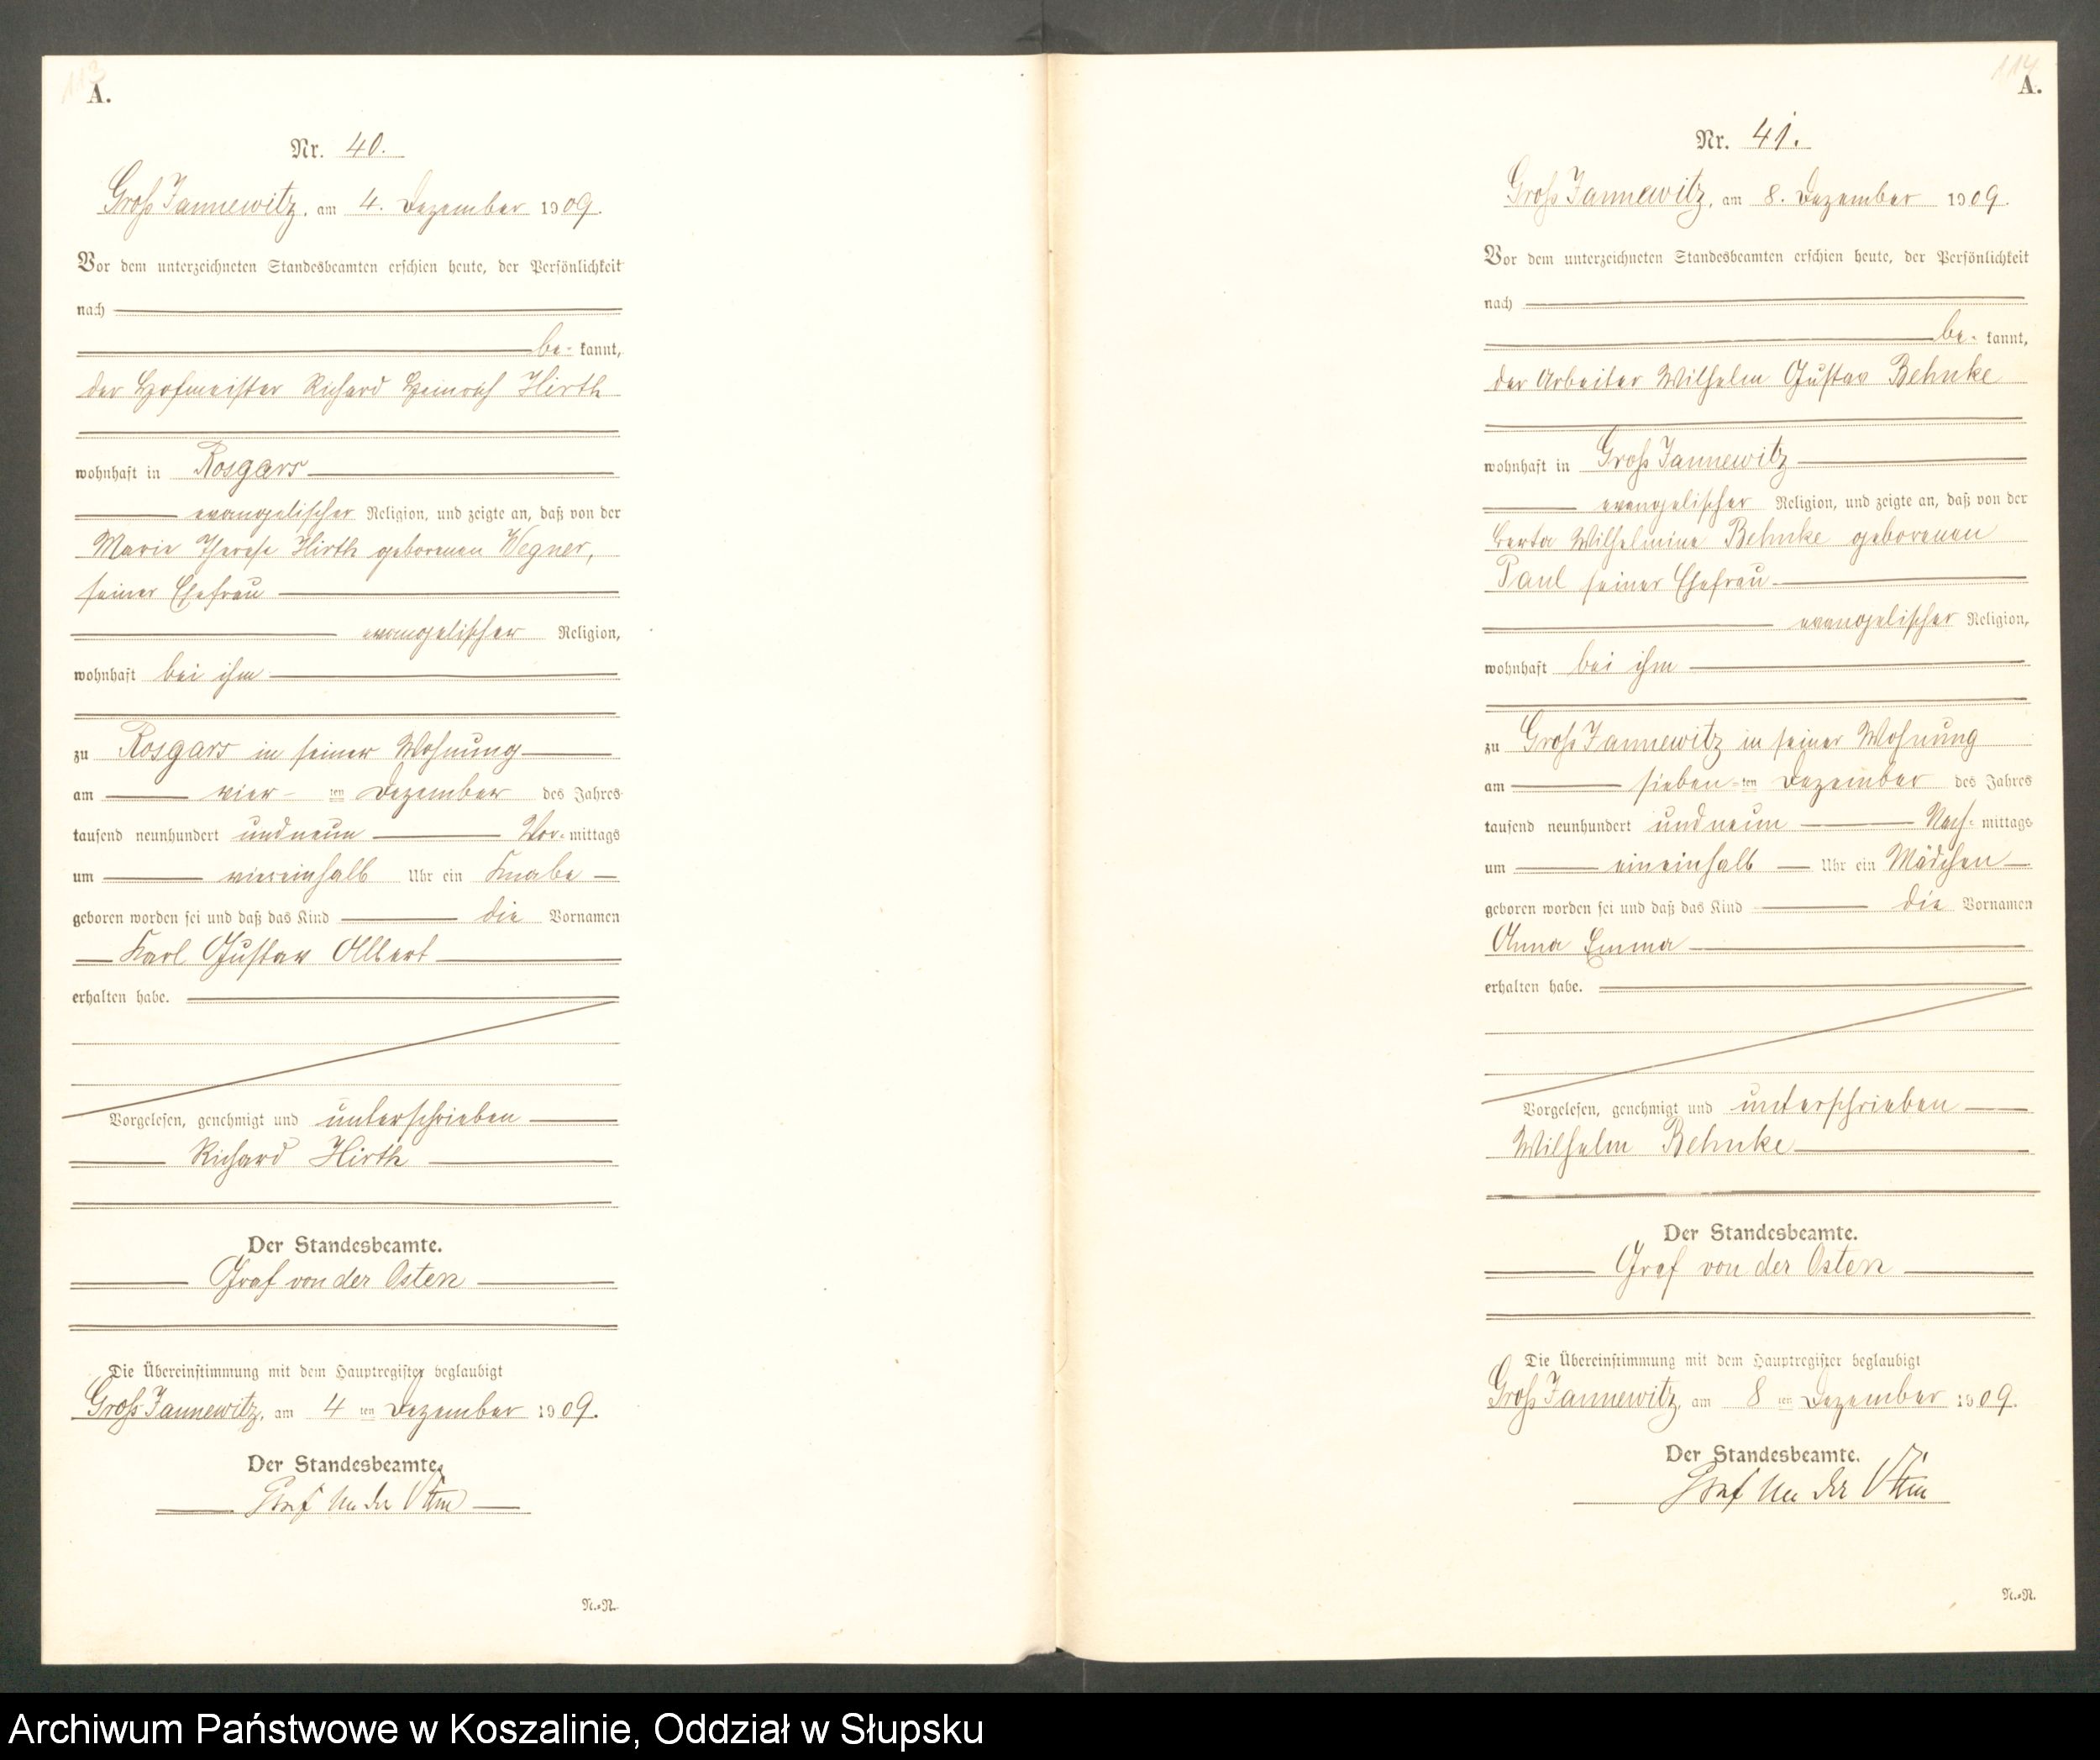 113
A.
Nr. 40.
Groß Jannewitz, am 4. Dezember 1909.
Vor dem unterzeichneten Standesbeamten erschien heute, der Persönlichkeit
nach
be- kannt,
der Hofmeister Richard Heinrich Hirth
wohnhaft in Rosgars
evangelischer Religion, und zeigte an, daß von der
Marie Therese Hirth geborenen Wegner,
seiner Ehefrau
evangelischer Religion,
wohnhaft bei ihm
zu Rosgars in seiner Wohnung
am vier- ten Dezember des Jahres
tausend neunhundert undneun Vor- mittags
um viereinhalb Uhr ein Knabe
geboren worden sei und daß das Kind die Vornamen
Karl Gustav Albert
erhalten habe.
Vorgelesen, genehmigt und unterschrieben
Richard Hirth
Der Standesbeamte.
Graf von der Osten
Die Übereinstimmung mit dem Hauptregister beglaubigt
Groß Jannewitz, am 4 ten Dezember 1909.
Der Standesbeamte.
Graf von der Osten
N.=N.
114
A.
Nr. 41.
Groß Jannewitz, am 8. Dezember 1909.
Vor dem unterzeichneten Standesbeamten erschien heute, der Persönlichkeit
nach
be- kannt,
der Arbeiter Wilhelm Gustav Behnke
wohnhaft in Groß Jannewitz
evangelischer Religion, und zeigte an, daß von der
Berta Wilhelmine Behnke geborenen
Paul seiner Ehefrau
evangelischer Religion,
wohnhaft bei ihm
zu Groß Jannewitz in seiner Wohnung
am sieben-ten Dezember des Jahres
tausend neunhundert undneun Nach- mittags
um eineinhalb Uhr ein Mädchen
geboren worden sei und daß das Kind die Vornamen
Anna Emma
erhalten habe.
Vorgelesen, genehmigt und unterschrieben
Wilhelm Behnke
Der Standesbeamte.
Graf von der Osten
Die Übereinstimmung mit dem Hauptregister beglaubigt
Groß Jannewitz, am 8 ten Dezember 1909.
Der Standesbeamte.
Graf von der Osten
N.=N.
Archiwum Państwowe w Koszalinie, Oddział w Słupsku